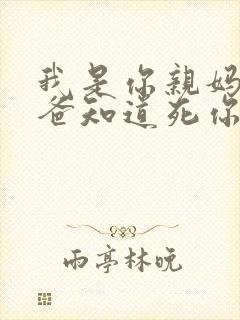 我是你親媽
爸知道死你
雨亭林晚